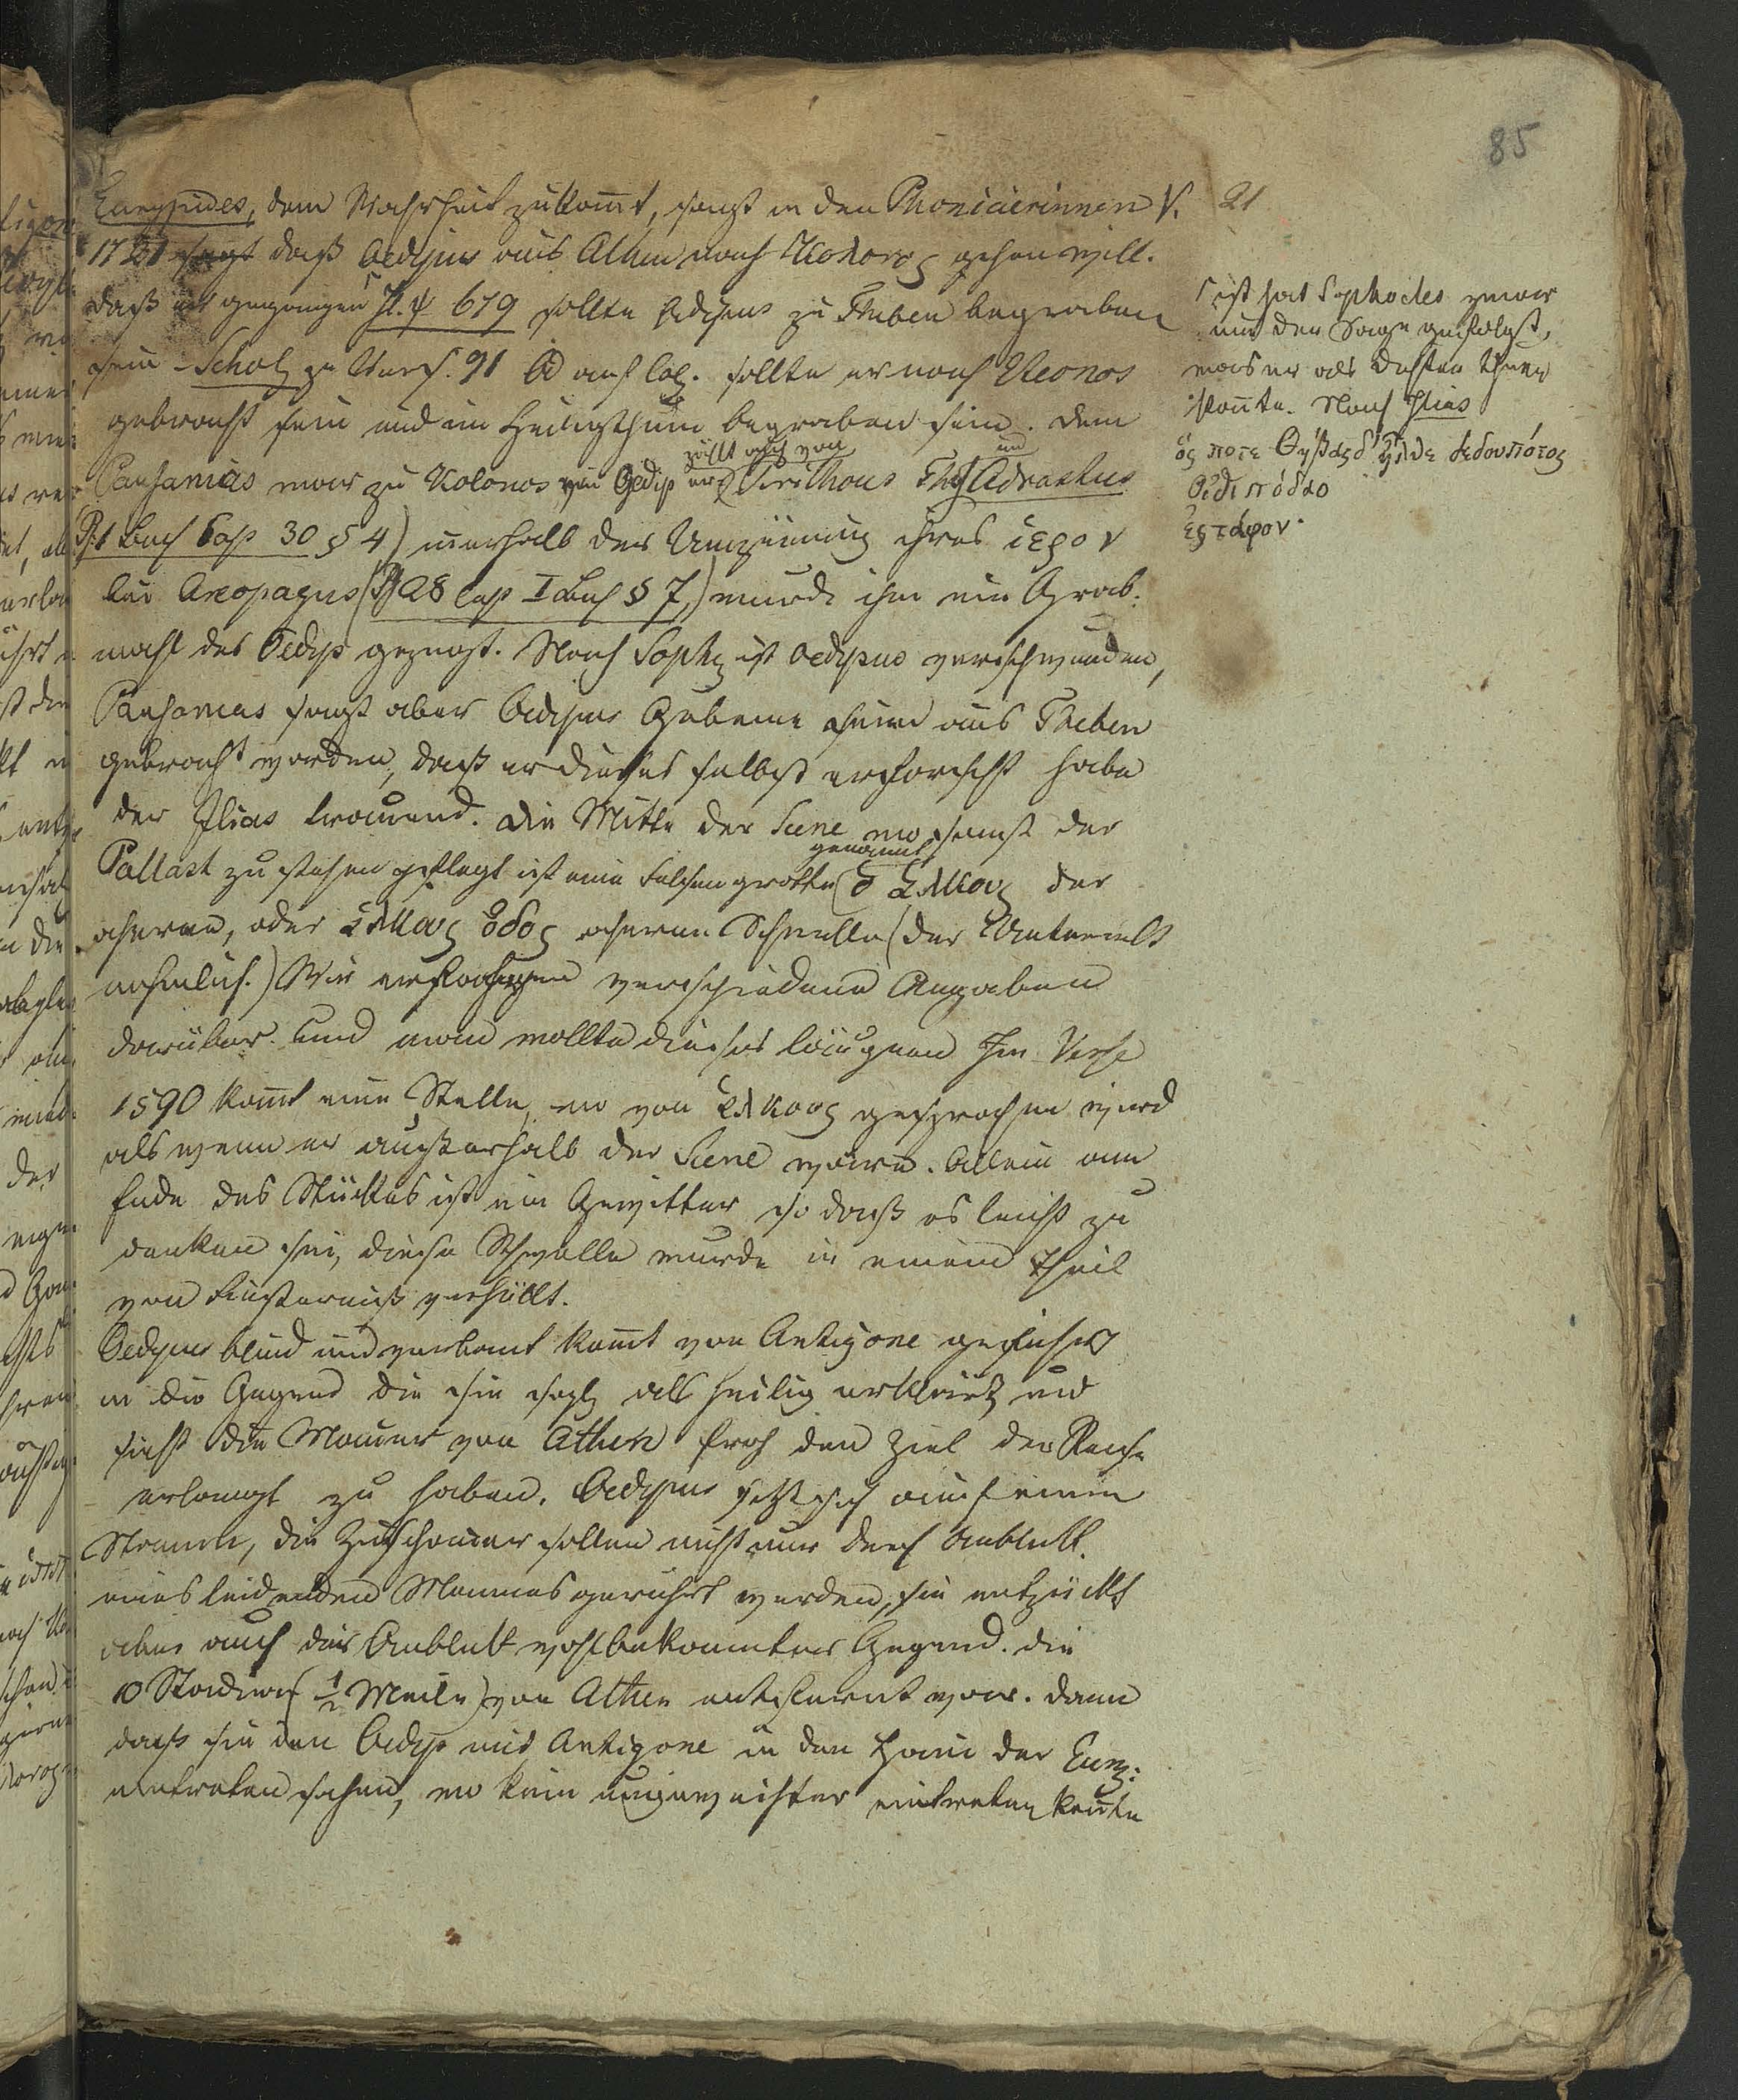 85
21
Eurypides, dem Wahrheit zukom̄t, sagt in den Phoniaierinnen V.
1721 sagt daß Oedypus aus Athen nach Κολονος gehen will.
daß er gegangen Il. ψ 679 sollte Oedypus zu Theben begraben
sein - Schol zu Vers. 91 Od auf Col. sollte er nach Eteonos
gebracht sein und im Heiligthum begraben sein. Dem
zählt auch von und
Pausanias war zu Kolonos ein Oedip Pirithous Thes Adrastus
I Buch Cap 30 § 4) innerhalb der Umzäunung ihres ιερον
bei Areopagus (28 Cap I Buch § 7,) wurde ihm ein Grab-
mahl des Oedip gezeugt. Nach Soph ist Oedypus verschwunden,
Pausanias sagt aber Oedipus Gebeine seien aus Theben
gebracht worden, daß er dieses selbst erforscht habe
der Ilias trauend. Die Mitte der Scene wo sonst der
genannt
Pallast zu stehen pflegt ist eine Felsengrotte (ὁ χαλκους der
eherne, oder χαλκους ὁδος eherne Schwelle (der Unterwelt
nehmlich.) Wir verschiedene Angaben
darüber. Und man wollte dieses läugnen Im Verse
1590 kom̄t eine Stelle, wo von χαλκους gesprochen wird
als wenn er außerhalb der Scene wäre. Allein am
Ende des Stückes ist ein Gewitter so daß es leicht zu
denken sei, diese Schwelle wurde in einem Theil
von Finsterniß verhüllt.
Oedypus blind und verbant kom̄t von Antigone geführt
in die Gegend die sie als heilig erklärt und
sieht die Mauer von Athen froh den Ziel der Reise
erlangt zu haben. Oedypus setzt sich auf einen
Stein, die Zuschauer sollen nicht nur durch Anblick
eines leidenden Mannes gerührt werden, sie entzückt
aber auch der Anblick wohlbekannter Gegend. die
10 Stadien (½ Meile) von Athen entfernt war. Dann
daß sie den Oedip mit Antigone in den Hain der Eum:
eintreten sehen, wo kein ungeweihter eintreten kon̄te
ist hat Sophocles zwar
nur der Sage gefolgt,
was er als Dichter thun
kon̄te. Nach Ilias
ὅς ποτε Θήβαςδ' ἦλθε δεδουπότος
Οἰδιπόδαο
ἐς τάφον.